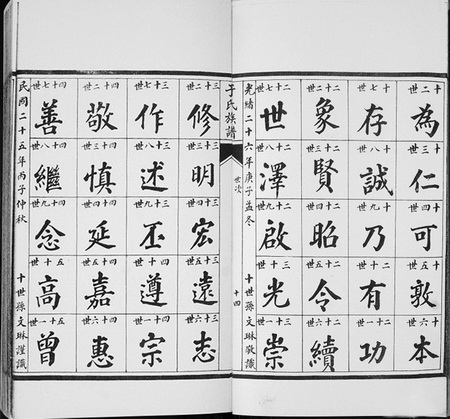 十二世 為
十三世 仁
十四世 可
十五世 敦
十六世 本
十七世 存
十八世 誠
十九世 乃
二十世 有
二十一世 功
二十二世 象
二十三世 賢
二十四世 昭
二十五世 令
二十六世 續
二十七世 世
二十八世 澤
二十九世 啟
三十世 光
三十一世 崇
光緒二十六年庚子孟冬 十世孫文琳敬識
于氏族譜 世次 十四
三十二世 修
三十三世 明
三十四世 宏
三十五世 遠
三十六世 志
三十七世 作
三十八世 述
三十九世 丕
四十世 遵
四十一世 宗
四十二世 敬
四十三世 慎
四十四世 延
四十五世 嘉
四十六世 惠
四十七世 善
四十八世 繼
四十九世 念
五十世 高
五十一世 曾
民國二十五年丙子仲秋 十世孫文琳謹識